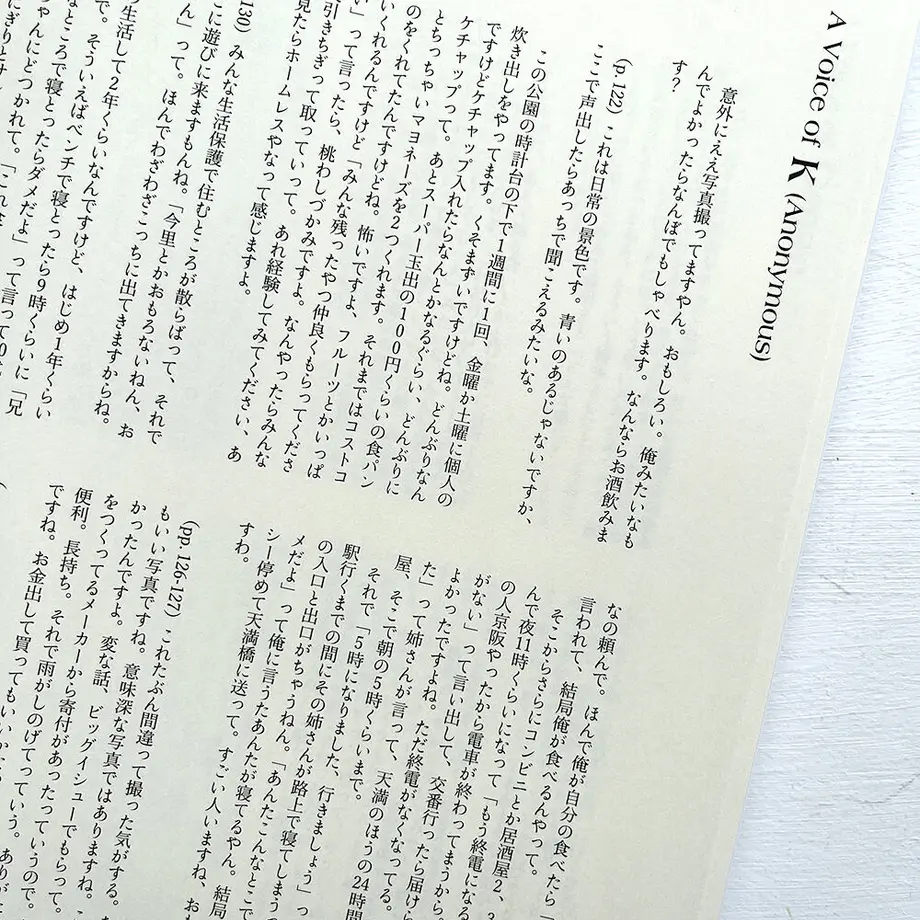 A Voice of K (Anonymous)
意外にええ写真撮ってますやん。おもしろい。俺みたいなも
んでよかったらなんぼでもしゃべります。なんならお酒飲みま
す？
(p. 122) これは日常の景色です。青いのあるじゃないですか、
ここで声出したらあっちで聞こえるみたいな。
この公園の時計台の下で1週間に1回、金曜か土曜に個人の
炊き出しをやってます。くそまずいですけどね。どんぶりなん
ですけどケチャップ入れたらなんとかなるぐらい、どんぶりに
ケチャップって。あとスーパー玉出の100円くらいの食パン
とちっちゃいマヨネーズを2つくれます。それまではコストコ
のをくれてたんですけどね。怖いですよ、フルーツとかいっぱ
いくれるんですけど「みんな残ったやつ仲良くもらってくださ
い」って言ったら、桃わしづかみですよ。なんやったらみんな
引きちぎって取っていって。あれ経験してみてください、あ
見たらホームレスやなって感じますよ。
130) みんな生活保護で住むところが散らばって、それで
こに遊びに来ますもんね。「今里とかおもろないねん、お
ん」って。ほんでわざわざこっちに出てきますからね。
生活して2年くらいなんですけど、はじめ1年くらい
で。そういえばベンチで寝とったら9時くらいに「兄
なところで寝とったらダメだよ」って言って
ちゃんにどつかれて。「これ
なの頼んで。ほんで俺が自分の食べたら「
言われて、結局俺が食べるんやって。
そこからさらにコンビニとか居酒屋2、
んで夜11時くらいになって「もう終電になる
の人京阪やったから電車が終わってまうから。
がない」って言い出して、交番行ったら届けら
よかったですよね。ただ終電がなくなってる。
た」って姉さんが言って、天満のほうの24時間
屋、そこで朝の5時くらいまで。
それで「5時になりました、行きましょう」っ
駅行くまでの間にその姉さんが路上で寝てしまうの
の人口と出口がちゃうねん。「あんたこんなとこで
メだよ」って俺に言うたあんたが寝てるやん。結局
シー停めて天満橋に送って。すごい人いますね、お
すわ。
(pp. 126-127) これたぶん間違って撮った気がする。
もいい写真ですね。意味深な写真ではありますね。
かったんですよ。変な話、ビッグイシューでもらって。
をつくってるメーカーから寄付があったっていうので。
便利。長持ち。それで雨がしのげてっていう。
ですね。お金出して買ってもいい